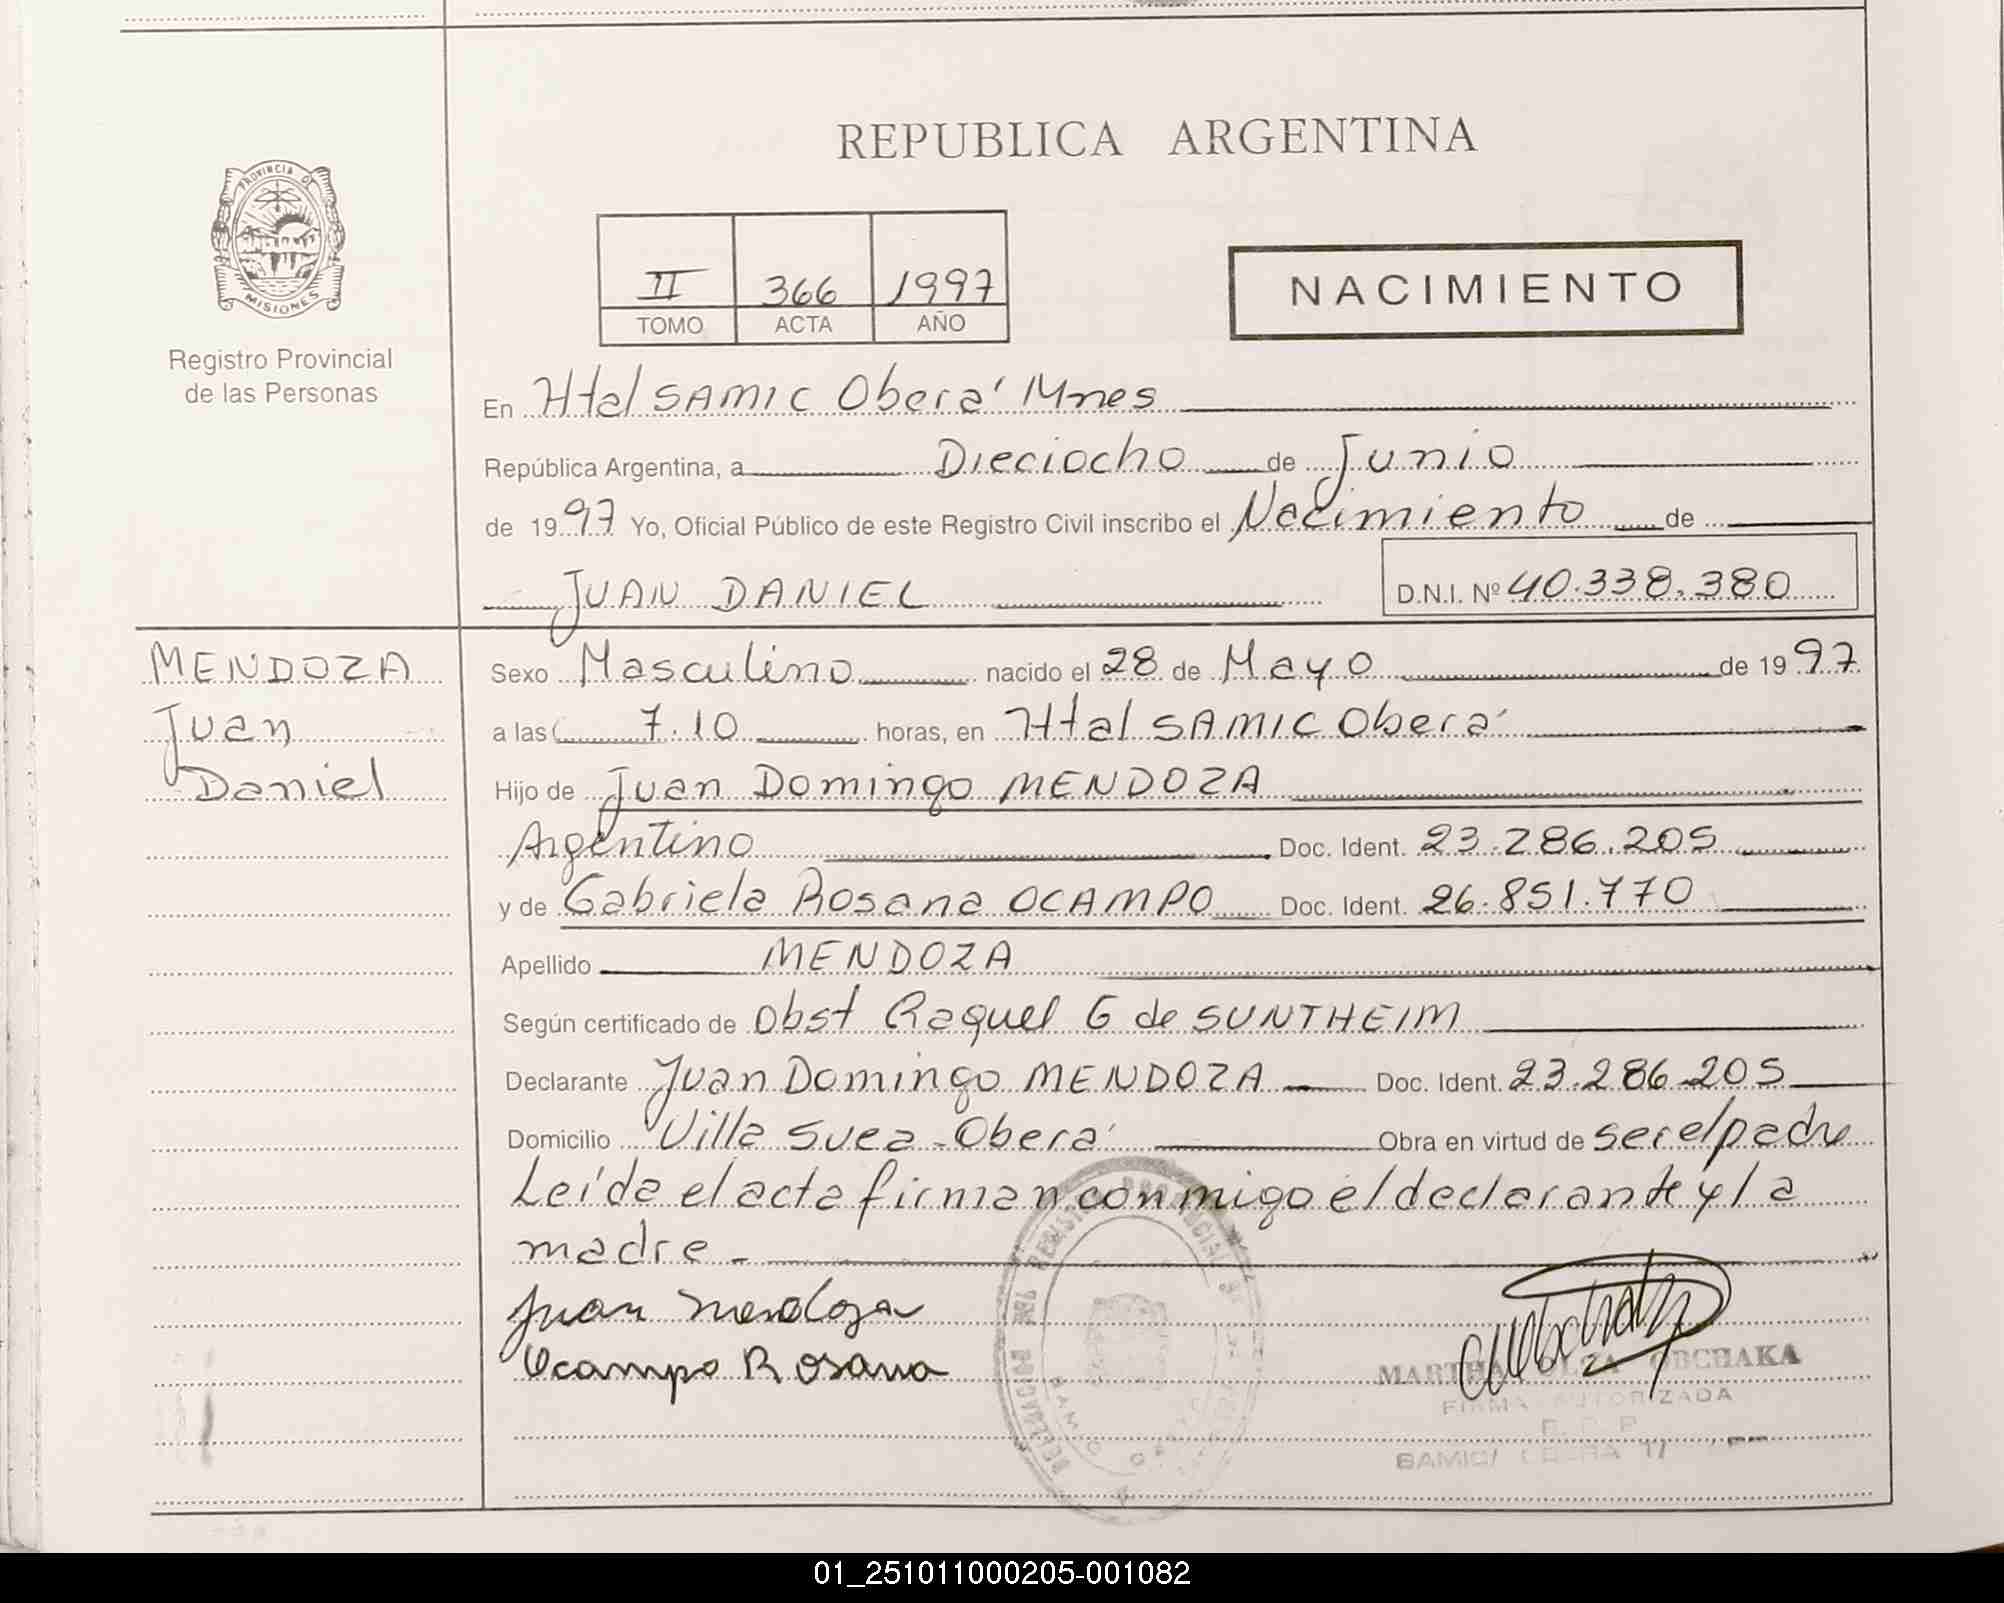 REPUBLICA ARGENTINA
PROVINCIA DE
MISIONES
Registro Provincial
de las Personas
II 366 1997
TOMO ACTA AÑO
NACIMIENTO
En Htal SAMIC Oberá Mnes
República Argentina, a Dieciocho de Junio
de 1997 Yo, Oficial Público de este Registro Civil inscribo el Nacimiento de
JUAN DANIEL D.N.I. Nº 40.338.380
MENDOZA
Juan
Daniel
Sexo Masculino nacido el 28 de Mayo de 1997
a las 7.10 horas, en Htal SAMIC Oberá
Hijo de Juan Domingo MENDOZA
Argentino Doc. Ident. 23.286.205
y de Gabriela Rosana OCAMPO Doc. Ident. 26.851.770
Apellido MENDOZA
Según certificado de Obst Raquel G de SUNTHEIM
Declarante Juan Domingo MENDOZA Doc. Ident. 23.286.205
Domicilio Villa Suea - Oberá Obra en virtud de ser el padre
Leída el acta firman conmigo el declarante y la
madre -
Juan Mendoza
Ocampo Rosana
MARTHA OBCHAKA
FIRMA AUTORIZADA
01_251011000205-001082